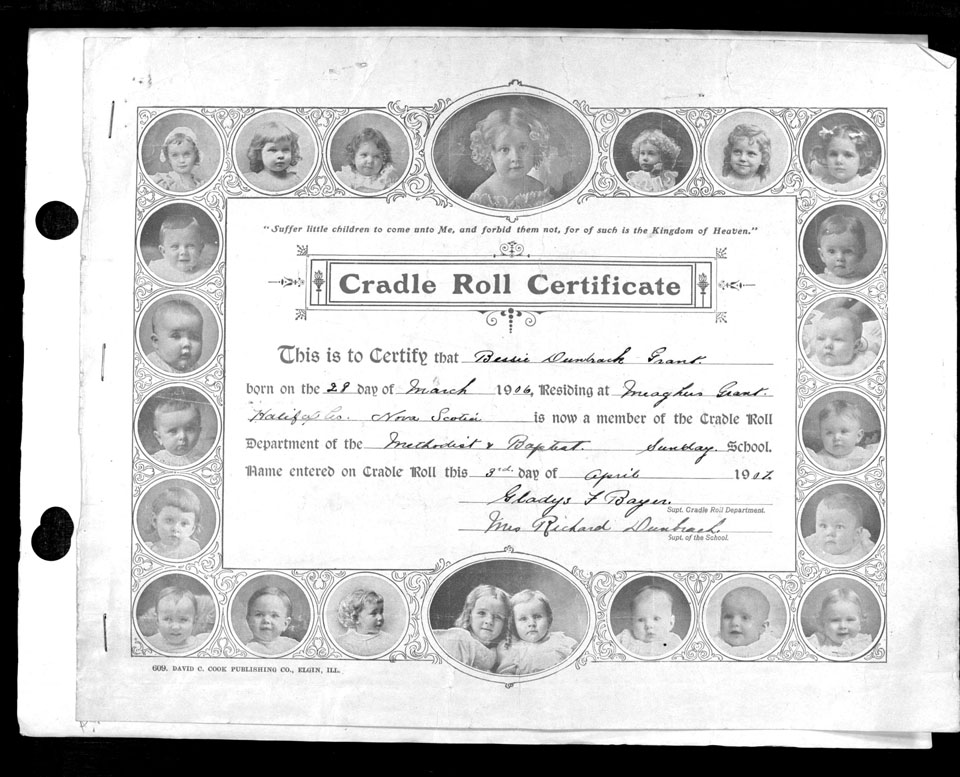 "Suffer little children to come unto Me, and forbid them not, for of such is the Kingdom of Heaven."
Cradle Roll Certificate
This is to Certify that Bessie Dunbrack Grant.
born on the 28 day of March 1906, Residing at Meaghers Grant.
Halifax Co. Nova Scotia is now a member of the Cradle Roll
Department of the Methodist & Baptist. Sunday. School.
Name entered on Cradle Roll this 3rd. day of April 1907.
Gladys F Bayer.
Supt. Cradle Roll Department.
Mrs Richard Dunbrack.
Supt. of the School.
609. DAVID C. COOK PUBLISHING CO., ELGIN, ILL.